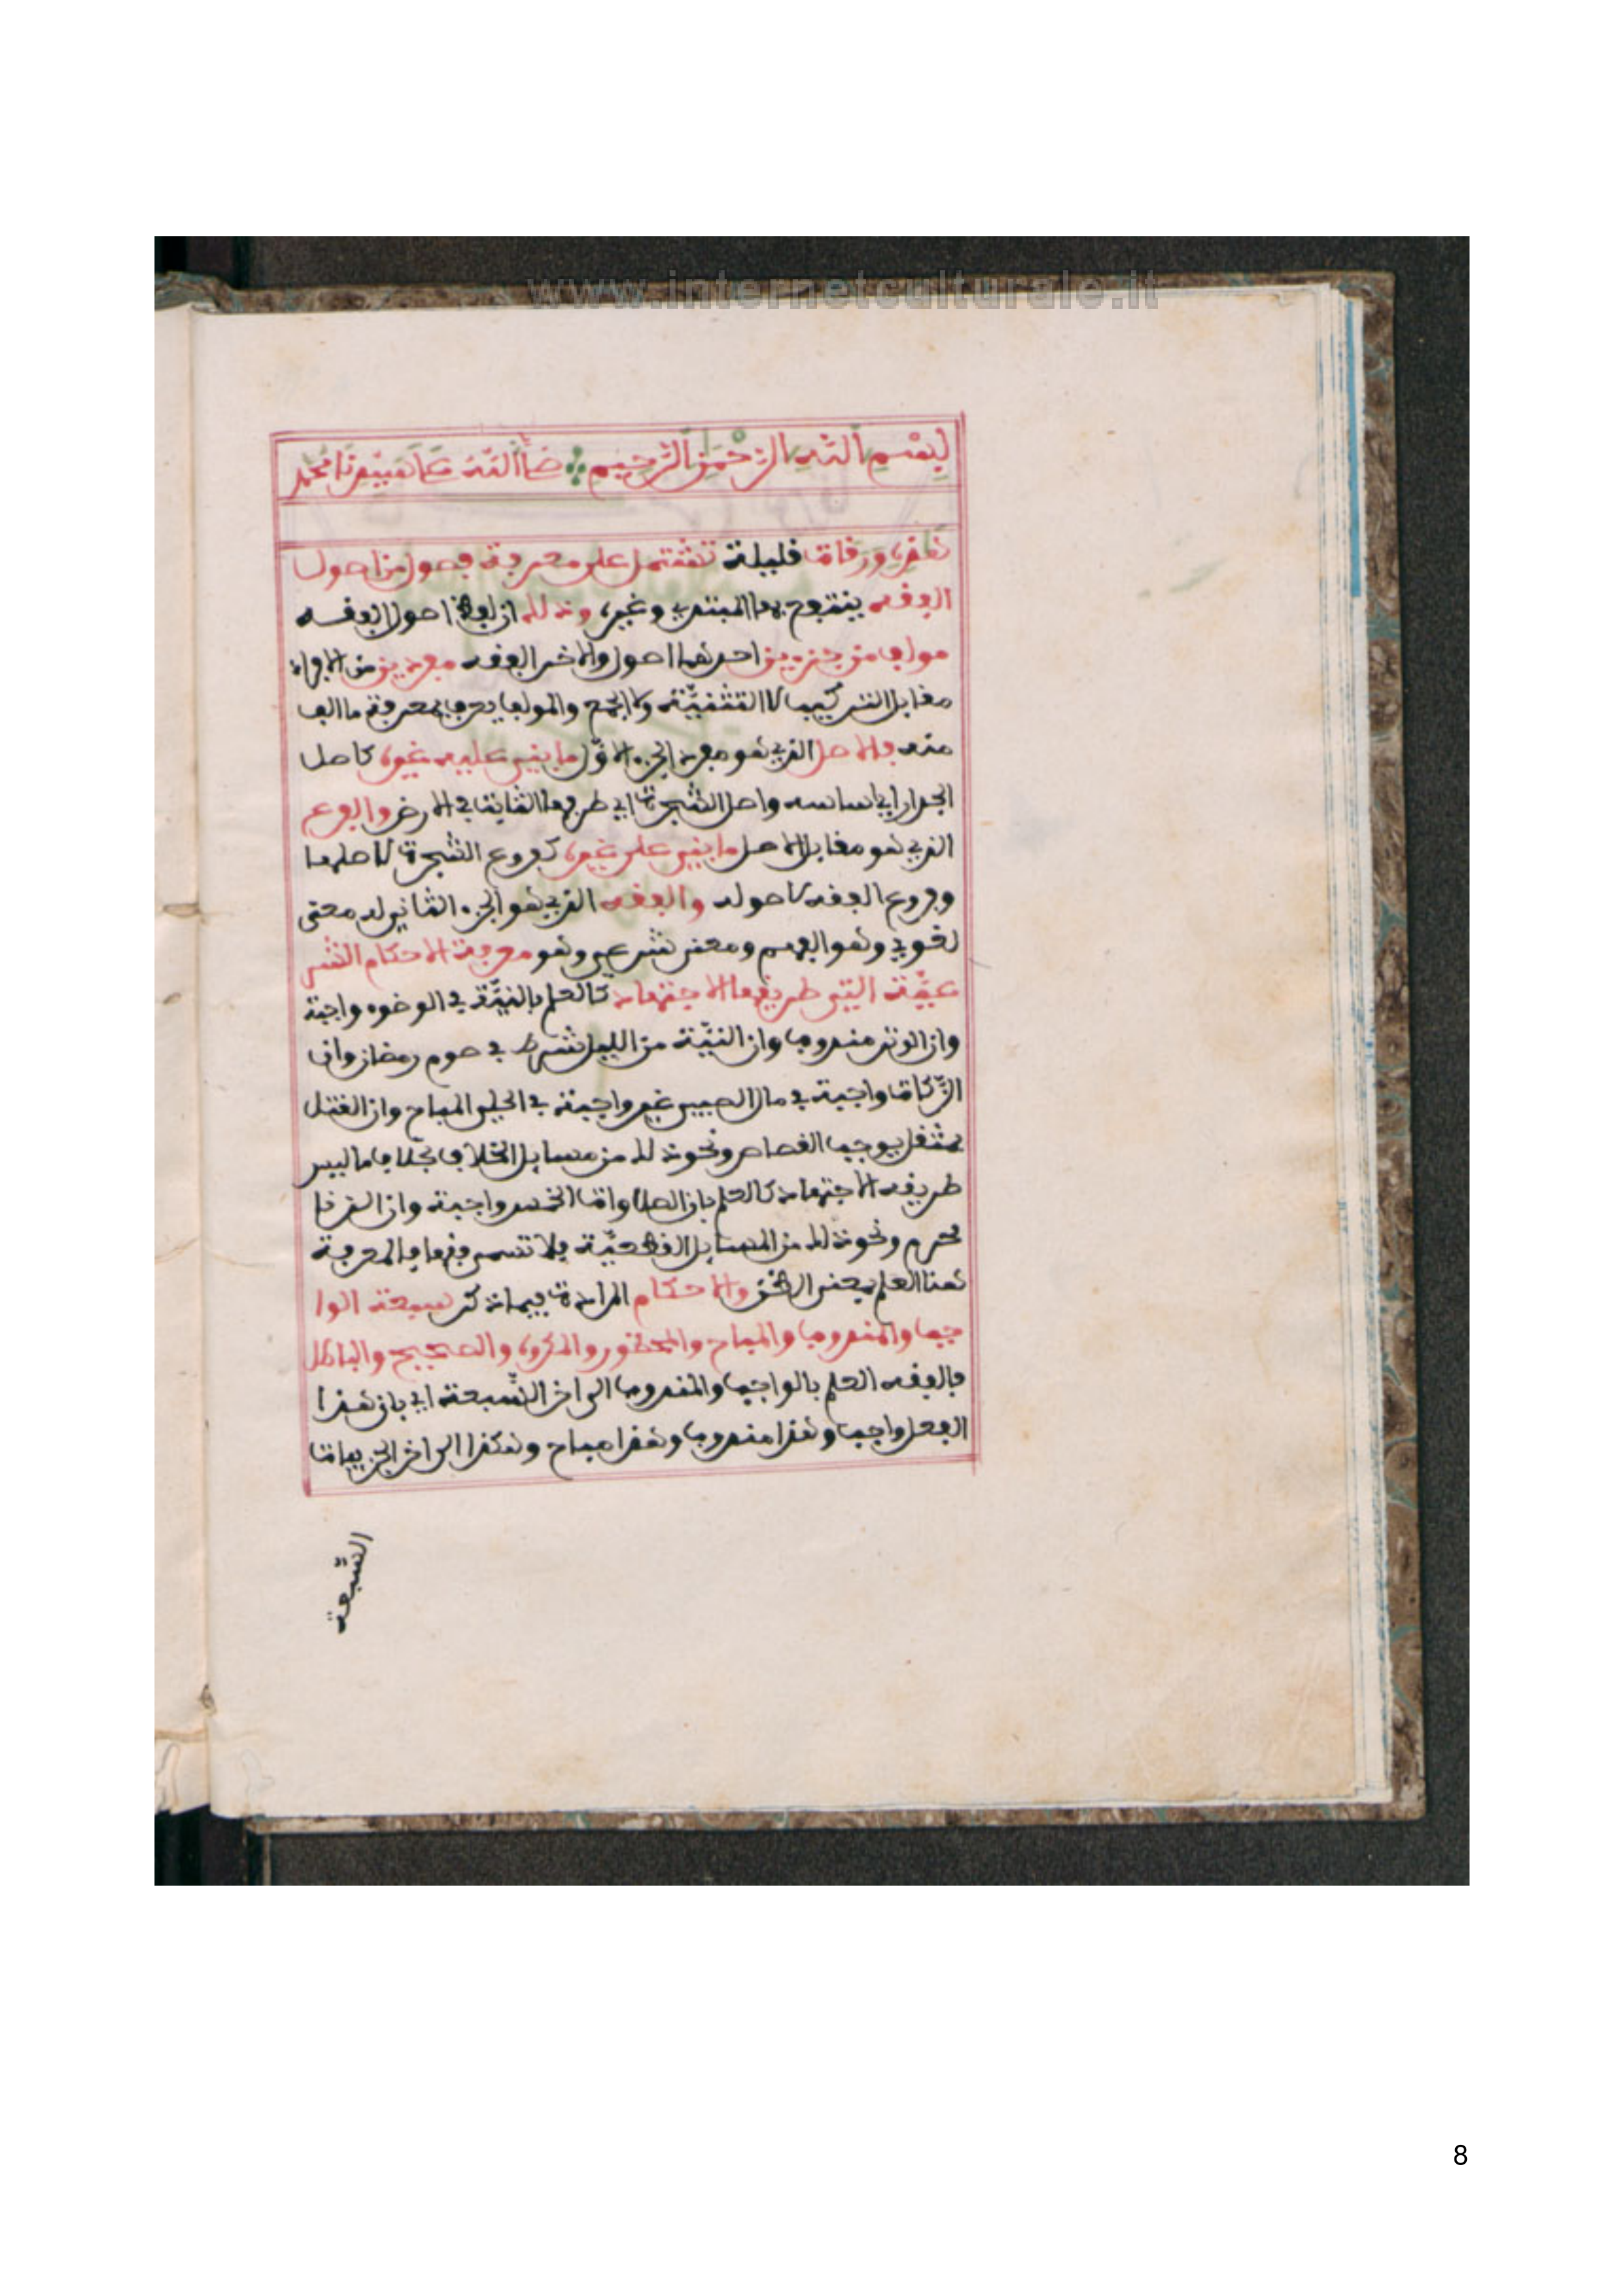 www.internetculturale.it
بِسْمِ اللهِ الرَّحْمَنِ الرَّحِيمِ صَلَّى اللهُ عَلَى سَيِّدِنَا مُحَمَّد
هَذِهِ وَرَقات قليلة تشتمل على معرفة فصول من اصول
الفقه ينتفع بها المبتدي وغيره وذلك ان لفظ اصول الفقه
مولف من جزءين احدهما اصول والاخر الفقه مفردين من الافراد
مقابل التركيب لا التثنيّة ولا الجمع والمولف يعرف بمعرفة ما الف
منه فالاصل الذي هو مفرد الجزء الاوّل ما يبنى عليه غيره كاصل
الجدار اي اساسه واصل الشجرة اي طرفها الثابت في الارض والفرع
الذي هو مقابل الاصل ما يبنى على غيره كفروع الشجرة لاصلها
وفروع الفقه لاصوله والفقه الذي هو الجزء الثاني له معنى
لغوي وهو الفهم ومعنى شرعي وهو معرفة الاحكام الشر
عيّة التي طريقها الاجتهاد كالعلم بان النيّة في الوضوء واجبة
وان الوتر مندوب وان النيّة من الليل شرط في صوم رمضان وان
الزّكاة واجبة في مال الصبي غير واجبة في الحلي المباح وان القتل
بمثقل يوجب القصاص ونحو ذلك من مسايل الخلاف بخلاف ما ليس
طريقه الاجتهاد كالعلم بان الصلوات الخمس واجبة وان الزنا
محرم ونحو ذلك من المسايل القطعيّة فلا تسمى فقها فالمعرفة
هنا العلم بمعنى الظن والاحكام المرادة فيما ذكر سبعة الوا
جب والمندوب والمباح والمحظور والمكروه والصحيح والباطل
فالفقه العلم بالواجب والمندوب الى اخر السّبعة اي بان هذا
الفعل واجب وهذا مندوب وهذا مباح وهكذا الى اخر الجزييات
السّبعة
8